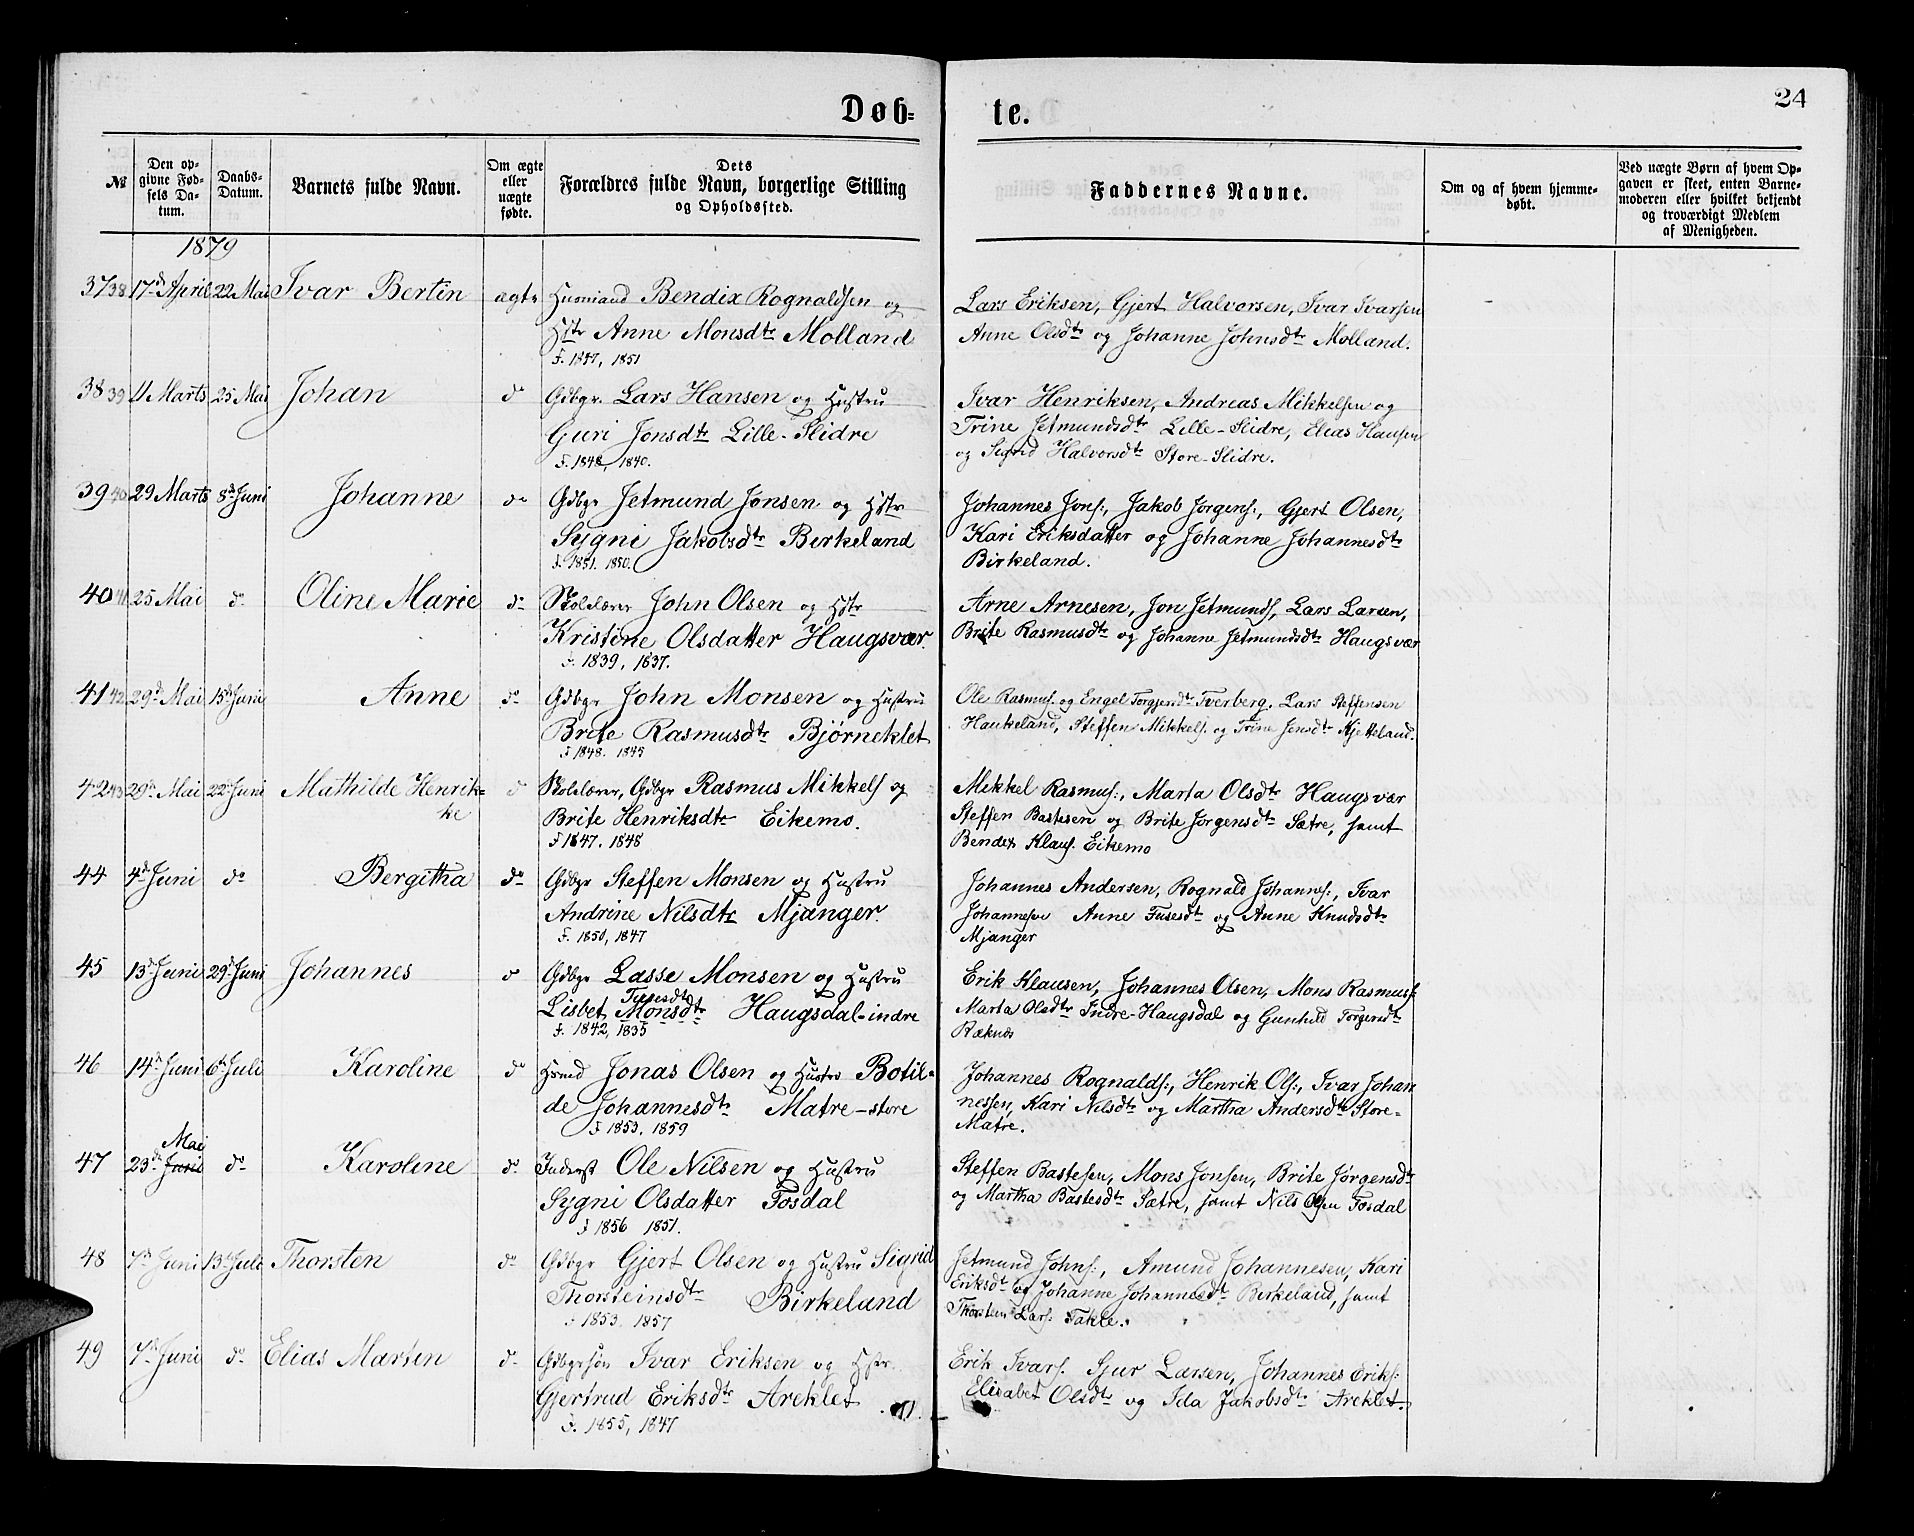 24
Døb=
te.
№ Den opgivne Fødsels Datum. Daabs-Datum. Barnets fulde Navn. Om ægte eller uægte fødte. Dets Forældres fulde Navn, borgerlige Stilling og Opholdssted. Faddernes Navne. Om og af hvem hjemmedøbt. Ved uægte Børn af hvem Opgaven er skeet, enten Barnemoderen eller hvilket bekjendt og troværdigt Medlem af Menigheden.
1879
37 38 17de April 22 Mai Ivar Bertin ægte Husmand Bendix Rognaldsen og
Hstr Anne Monsdtr Molland
F. 1847, 1851
Lars Eriksen, Gjert Halvorsen, Ivar Ivarsen
Anne Olsdtr og Johanne Johnsdtr Molland.
38 39 11 Marts 25 Mai Johan do Gdbgr. Lars Hansen og Hustru
Guri Jonsdtr Lille-Slidre
F. 1848, 1840.
Ivar Henriksen, Andreas Mikkelsen og
Trine Jetmundsdtr Lille-Slidre, Elias Hansen
og Sigrid Halvorsdtr Store-Slidre.
39 40 29 Marts 8de Juni Johanne do Gdbgr Jetmund Jonsen og Hstr
Sygni Jakobsdtr Birkeland
F. 1851. 1850.
Johannes Jons:, Jakob Jørgens:, Gjert Olsen,
Kari Eriksdatter og Johanne Johannesdtr
Birkeland.
40 41 25 Mai do Oline Marie do Skolelærer John Olsen og Hstr
Kristine Olsdatter Haugsvær.
F. 1839, 1837.
Arne Arnesen, Jon Jetmunds, Lars Larsen,
Brite Rasmusdtr og Johanne Jetmundsdtr Haugsvær
41 42 29de Mai 15de Juni Anne do Gdbgr John Monsen og Hustru
Brite Rasmusdtr Bjørneklet
F 1848. 1845
Ole Rasmus: og Engel Torgjersdtr Tverberg, Lars Steffensen
Haukeland, Steffen Mikkels. og Trine Jensdtr Kjetteland.
42 43 29de Mai 22de Juni Mathilde Henrik=
ke do Skolelærer, Gdbgr Rasmus Mikkels og
Brite Henriksdtr Eikemo.
F 1847. 1848
Mekkel Rasmus:, Marta Olsdtr Haugsvær
Steffen Bastesen og Brite Jørgensdtr Sætre, samt
Bendex Klaus. Eikemo
44 4de Juni do Bergitha do Gdbgr Steffen Monsen og Hustru
Andrine Nilsdtr Mjanger.
F. 1850, 1847
Johannes Andersen, Rognald Johannes:, Ivar
Johannesen Anne Tusesdtr og Anne Knudsdtr
Mjanger
45 13de Juni 29de Juni Johannes do Gdbgr Lasse Monsen og Hustru
Tusesdtr
Lisbet Monsdtr Haugsdal-indre
F. 1842, 1835
Erik Klausen, Johannes Olsen, Mons Rasmus:
Marta Olsdtr Indre-Haugsdal og Gunhild Torgersdtr
Ræknes
46 14de Juni 6te Juli Karoline do Hsmd Jonas Olsen og Hustru Botil=
de Johannesdtr Matre-store
F 1853. 1859
Johannes Rognalds:, Henrik Ols:, Ivar Johan
nessen, Kari Nilsdtr og Martha Andersdtr Store-
Matre.
Mai
47 23de Juni do Karoline do Inderst Ole Nilsen og Hustru
Sygni Olsdatter Fosdal
F 1856 1851.
Steffen Bastesen, Mons Jonsen, Brite Jørgensdtr
og Martha Bastesdtr Sætre, samt Nils Olsen Fosdal
48 7de Juni 13de Juli Thorsten do Gdbgr Gjert Olsen og Hustru Sigrid
Thorsteinsdtr Birkeland
F 1853. 1857
Jetmund Johns:, Amund Johannesen, Kari
Eriksdtr og Johanne Johannesdtr Birkeland, samt
Thorstein Lars: Takle.
49 7de Juni do Elias Martin do Gdbgrsøn Ivar Eriksen og Hstr
Gjertrud Eriksdtr Areklet
F. 1855, 1847
Erik Ivars. Sjur Larsen, Johannes Eriks:
Elisabet Olsdtr og Ida Jakobsdtr Areklet.